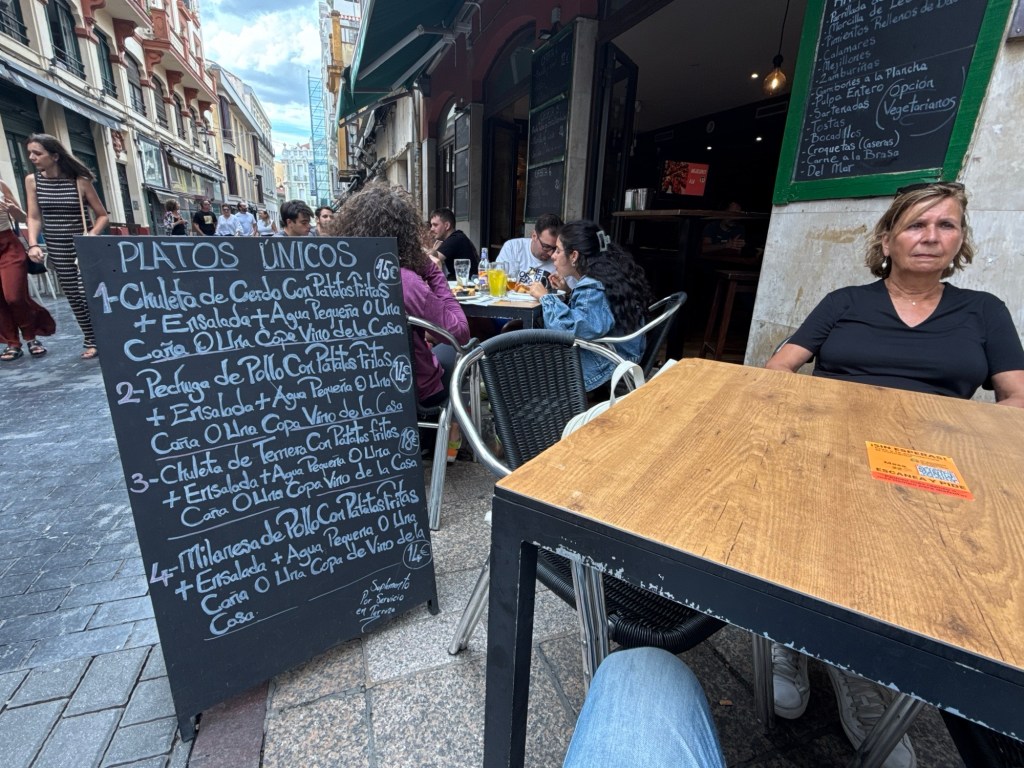 PLATOS ÚNICOS
1- Chuleta de Cerdo Con Patatas Fritas 15€
+ Ensalada + Agua Pequeña O Una
Caña O Una Copa Vino de la Casa
2- Pechuga de Pollo Con Patatas Fritas
+ Ensalada + Agua Pequeña O Una 14€
Caña O Una Copa Vino de la Casa
3- Chuleta de Ternera Con Patatas Fritas 18€
+ Ensalada + Agua Pequeña O Una
Caña O Una Copa Vino de la Casa
4- Milanesa de Pollo Con Patatas Fritas
+ Ensalada + Agua Pequeña O Una
Caña O Una Copa de Vino de la 14€
Casa.
Suplemento
Por Servicio
en Terraza
- Morcilla de
- Pimientos Rellenos de
- Calamares
- Mejillones
- Zamburiñas
- Gambones a la Plancha
- Pulpo Entero
- Sartenadas
- Tostas
- Bocadillos
- Croquetas (caseras)
- Carne a la Brasa
- Del Mar
Opcion
Vegetarianos
¡SIN ESPERAS!
ESCANEA Y PIDE